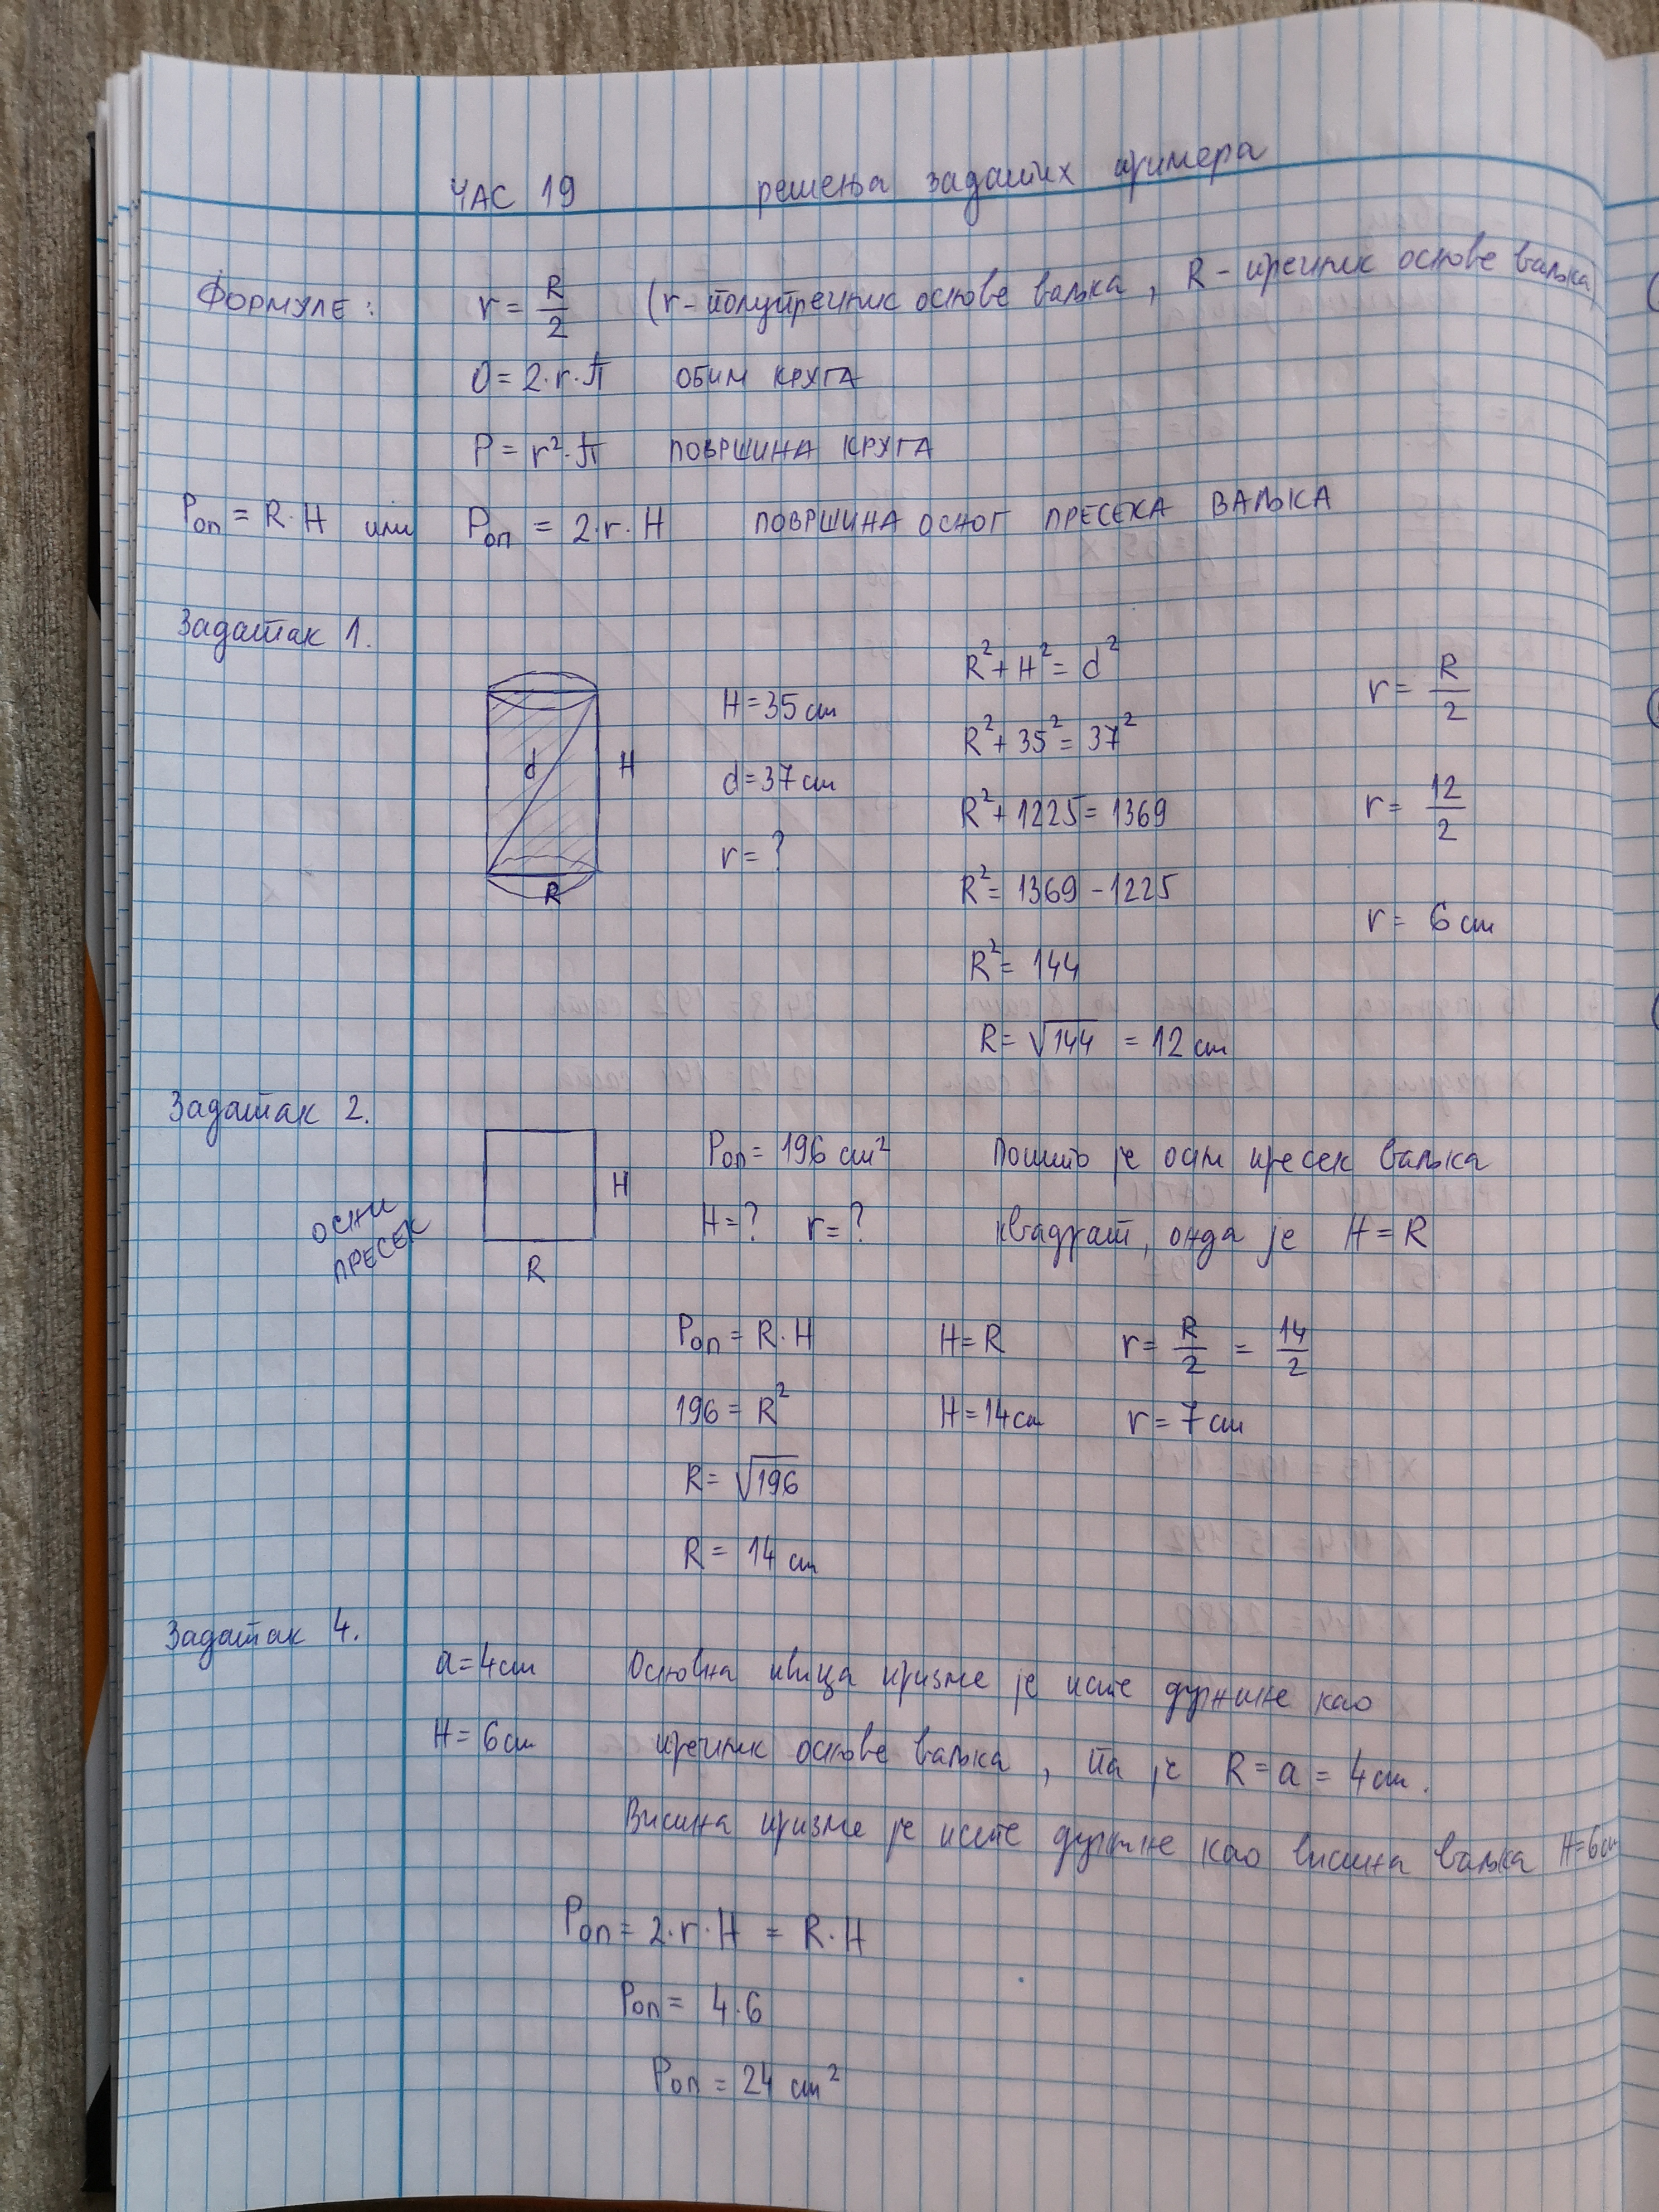 ЧАС 19 решења задатих примера
ФОРМУЛЕ: r = R/2 (r - полупречник основе ваљка, R - пречник основе ваљка)
O = 2·r·π ОБИМ КРУГА
P = r²·π ПОВРШИНА КРУГА
Pоп = R·H или Pоп = 2·r·H ПОВРШИНА ОСНОГ ПРЕСЕКА ВАЉКА
Задатак 1.
d H
R
H = 35 cm
d = 37 cm
r = ?
R² + H² = d²
R² + 35² = 37²
R² + 1225 = 1369
R² = 1369 - 1225
R² = 144
R = √144 = 12 cm
r = R/2
r = 12/2
r = 6 cm
Задатак 2.
ОСНИ
ПРЕСЕК
H
R
Pоп = 196 cm² Пошто је осни пресек ваљка
H = ? r = ? квадрат, онда је H = R
Pоп = R·H H = R r = R/2 = 14/2
196 = R² H = 14 cm r = 7 cm
R = √196
R = 14 cm
Задатак 4.
a = 4 cm Основна ивица призме је исте дужине као
H = 6 cm пречник основе ваљка, па је R = a = 4 cm.
Висина призме је исте дужине као висина ваљка H = 6 cm
Pоп = 2·r·H = R·H
Pоп = 4·6
Pоп = 24 cm²